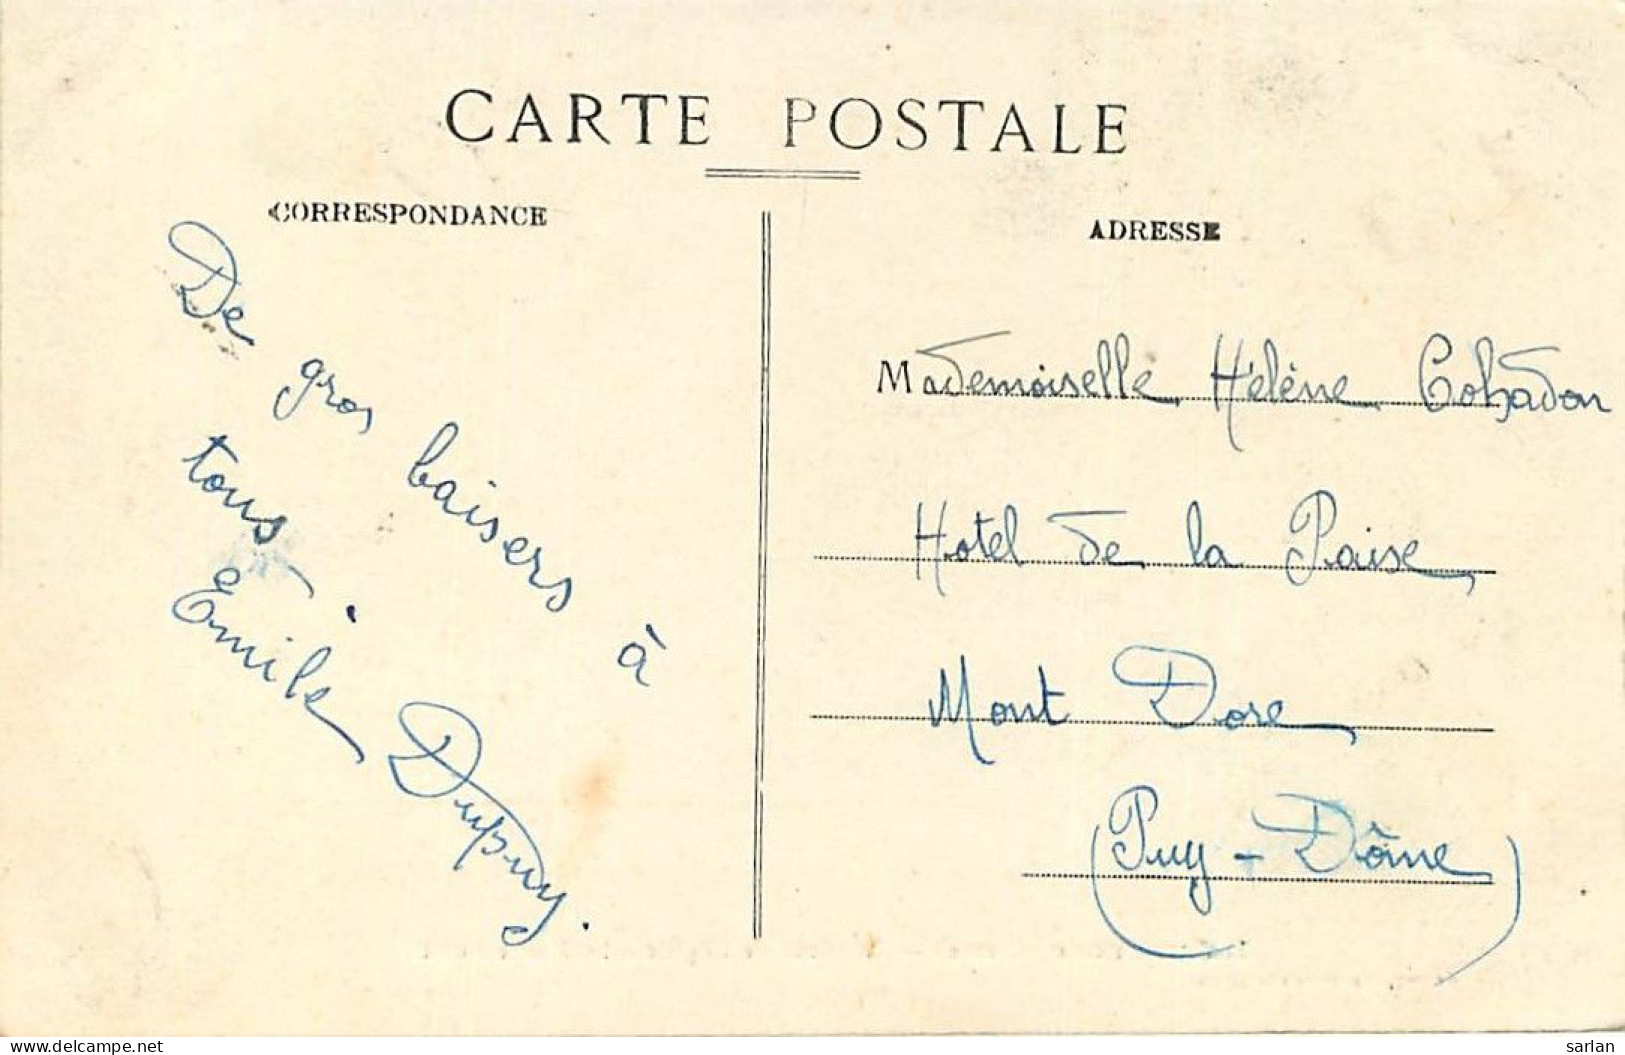 CARTE POSTALE
CORRESPONDANCE
ADRESSE
De gros baisers à
tous.
Emile Dupuy.
Mademoiselle Hélène Cohadon
Hotel de la Paise
Mont Dore
(Puy-Dôme)
delcampe.net
sarlan